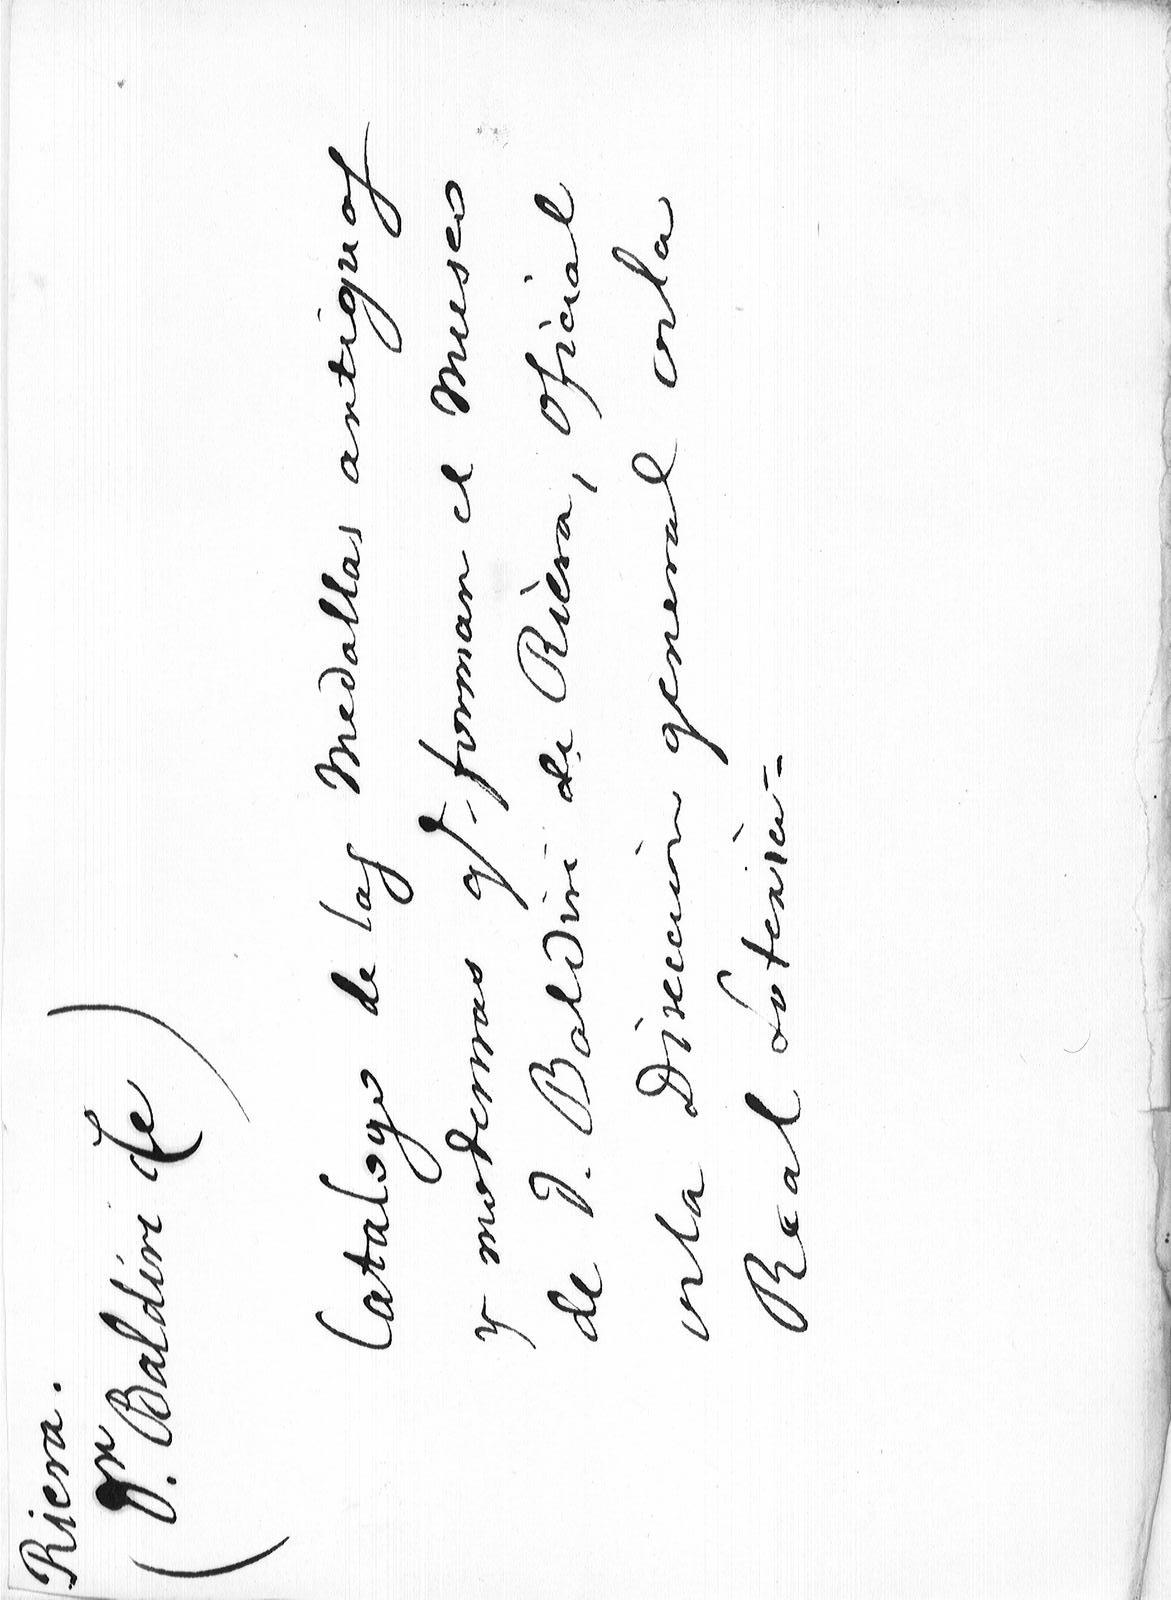 Riera.
(Dn. Baldiri de)
Catalogo de las Medallas antiguas
y modernas q. forman el Museo
de D. Baldiri de Riera, oficial
en la Direccion general de la
Real Loteria=